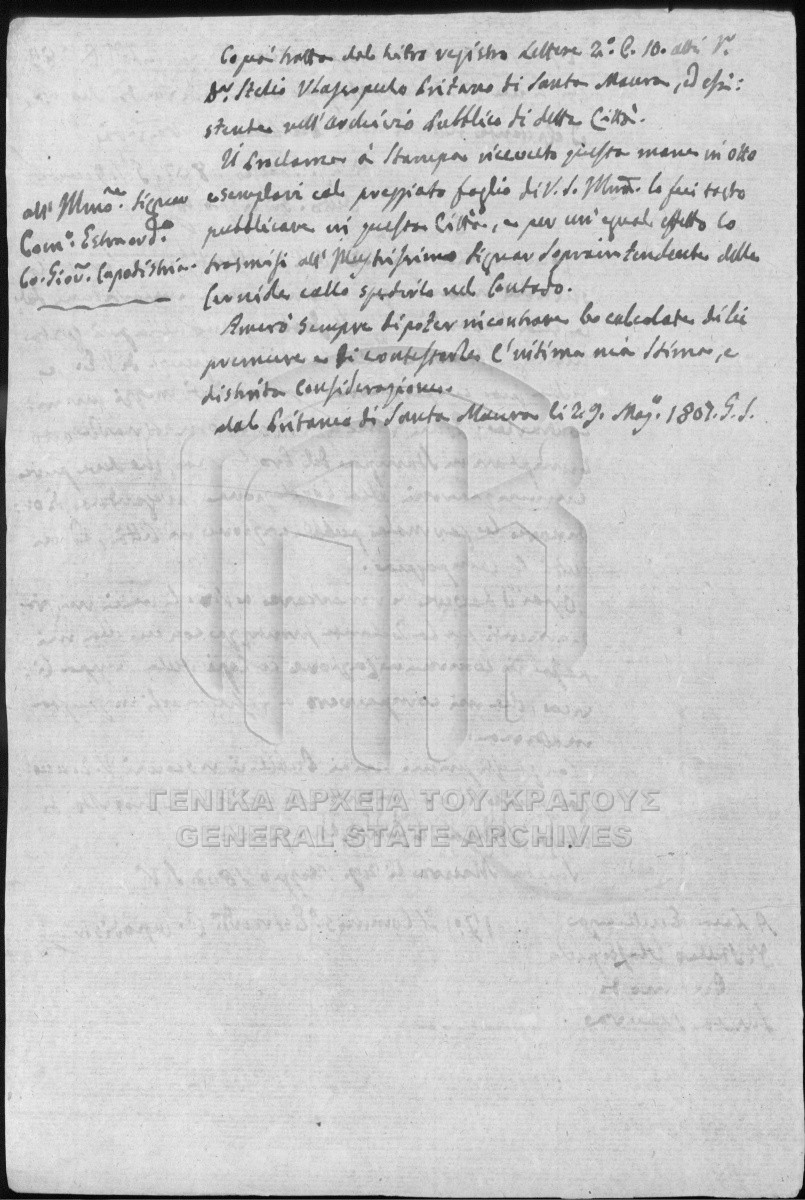 Copia tratta dal libro registro Lettere 2.o C. 10. atti Sr.
Dr. Stelio Vlassopulo Pritano di Santa Maura, ed esi:
stente nell'Archivio Pubblico di detta Città.
Il Proclama à Stampa ricevuto questa mane in otto
esemplari col preggiato foglio di V. S. Illma. lo feci tosto
pubblicare in questa Città, e per un'egual effetto lo
trasmisi all'Illustrissimo Signor Sopraintendente delle
Cernide collo spedirlo nel Contado.
all'Illmo. Signor
Com.o Estraord.o
Co. Giov. Capodistria
Amerò sempre di poter incontrare le calcolate di lei
premure e di contestarle l'intima mia stima, e
distinta considerazione.
dal Pritaneo di Santa Maura li 29. Mag.o 1807. S.
ΓΕΝΙΚΑ ΑΡΧΕΙΑ ΤΟΥ ΚΡΑΤΟΥΣ
GENERAL STATE ARCHIVES